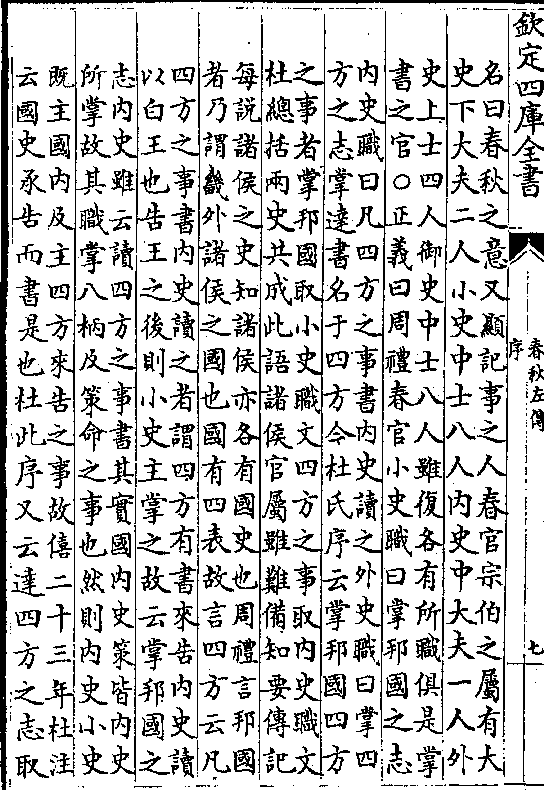 欽定四庫全書
春秋左傳
序
七
名曰春秋之意又顯記事之人春官宗伯之屬有大
史下大夫二人小史中士八人內史中大夫一人外
史上士四人御史中士八人雖復各有所職俱是掌
書之官○正義曰周禮春官小史職曰掌邦國之志
內史職曰凡四方之事書內史讀之外史職曰掌四
方之志掌達書名于四方今杜氏序云掌邦國四方
之事者掌邦國取小史職文四方之事取內史職文
杜總括兩史共成此語諸侯官屬雖難備知要傳記
每說諸侯之史知諸侯亦各有國史也周禮言邦國
者乃謂畿外諸侯之國也國有四表故言四方云凡
四方之事書內史讀之者謂四方有書來告內史讀
以白王也告王之後則小史主掌之故云掌邦國之
志內史雖云讀四方之事書其實國內史策皆內史
所掌故其職掌八柄及策命之事也然則內史小史
既主國內及主四方來告之事故僖二十三年杜注
云國史承告而書是也杜此序又云達四方之志取